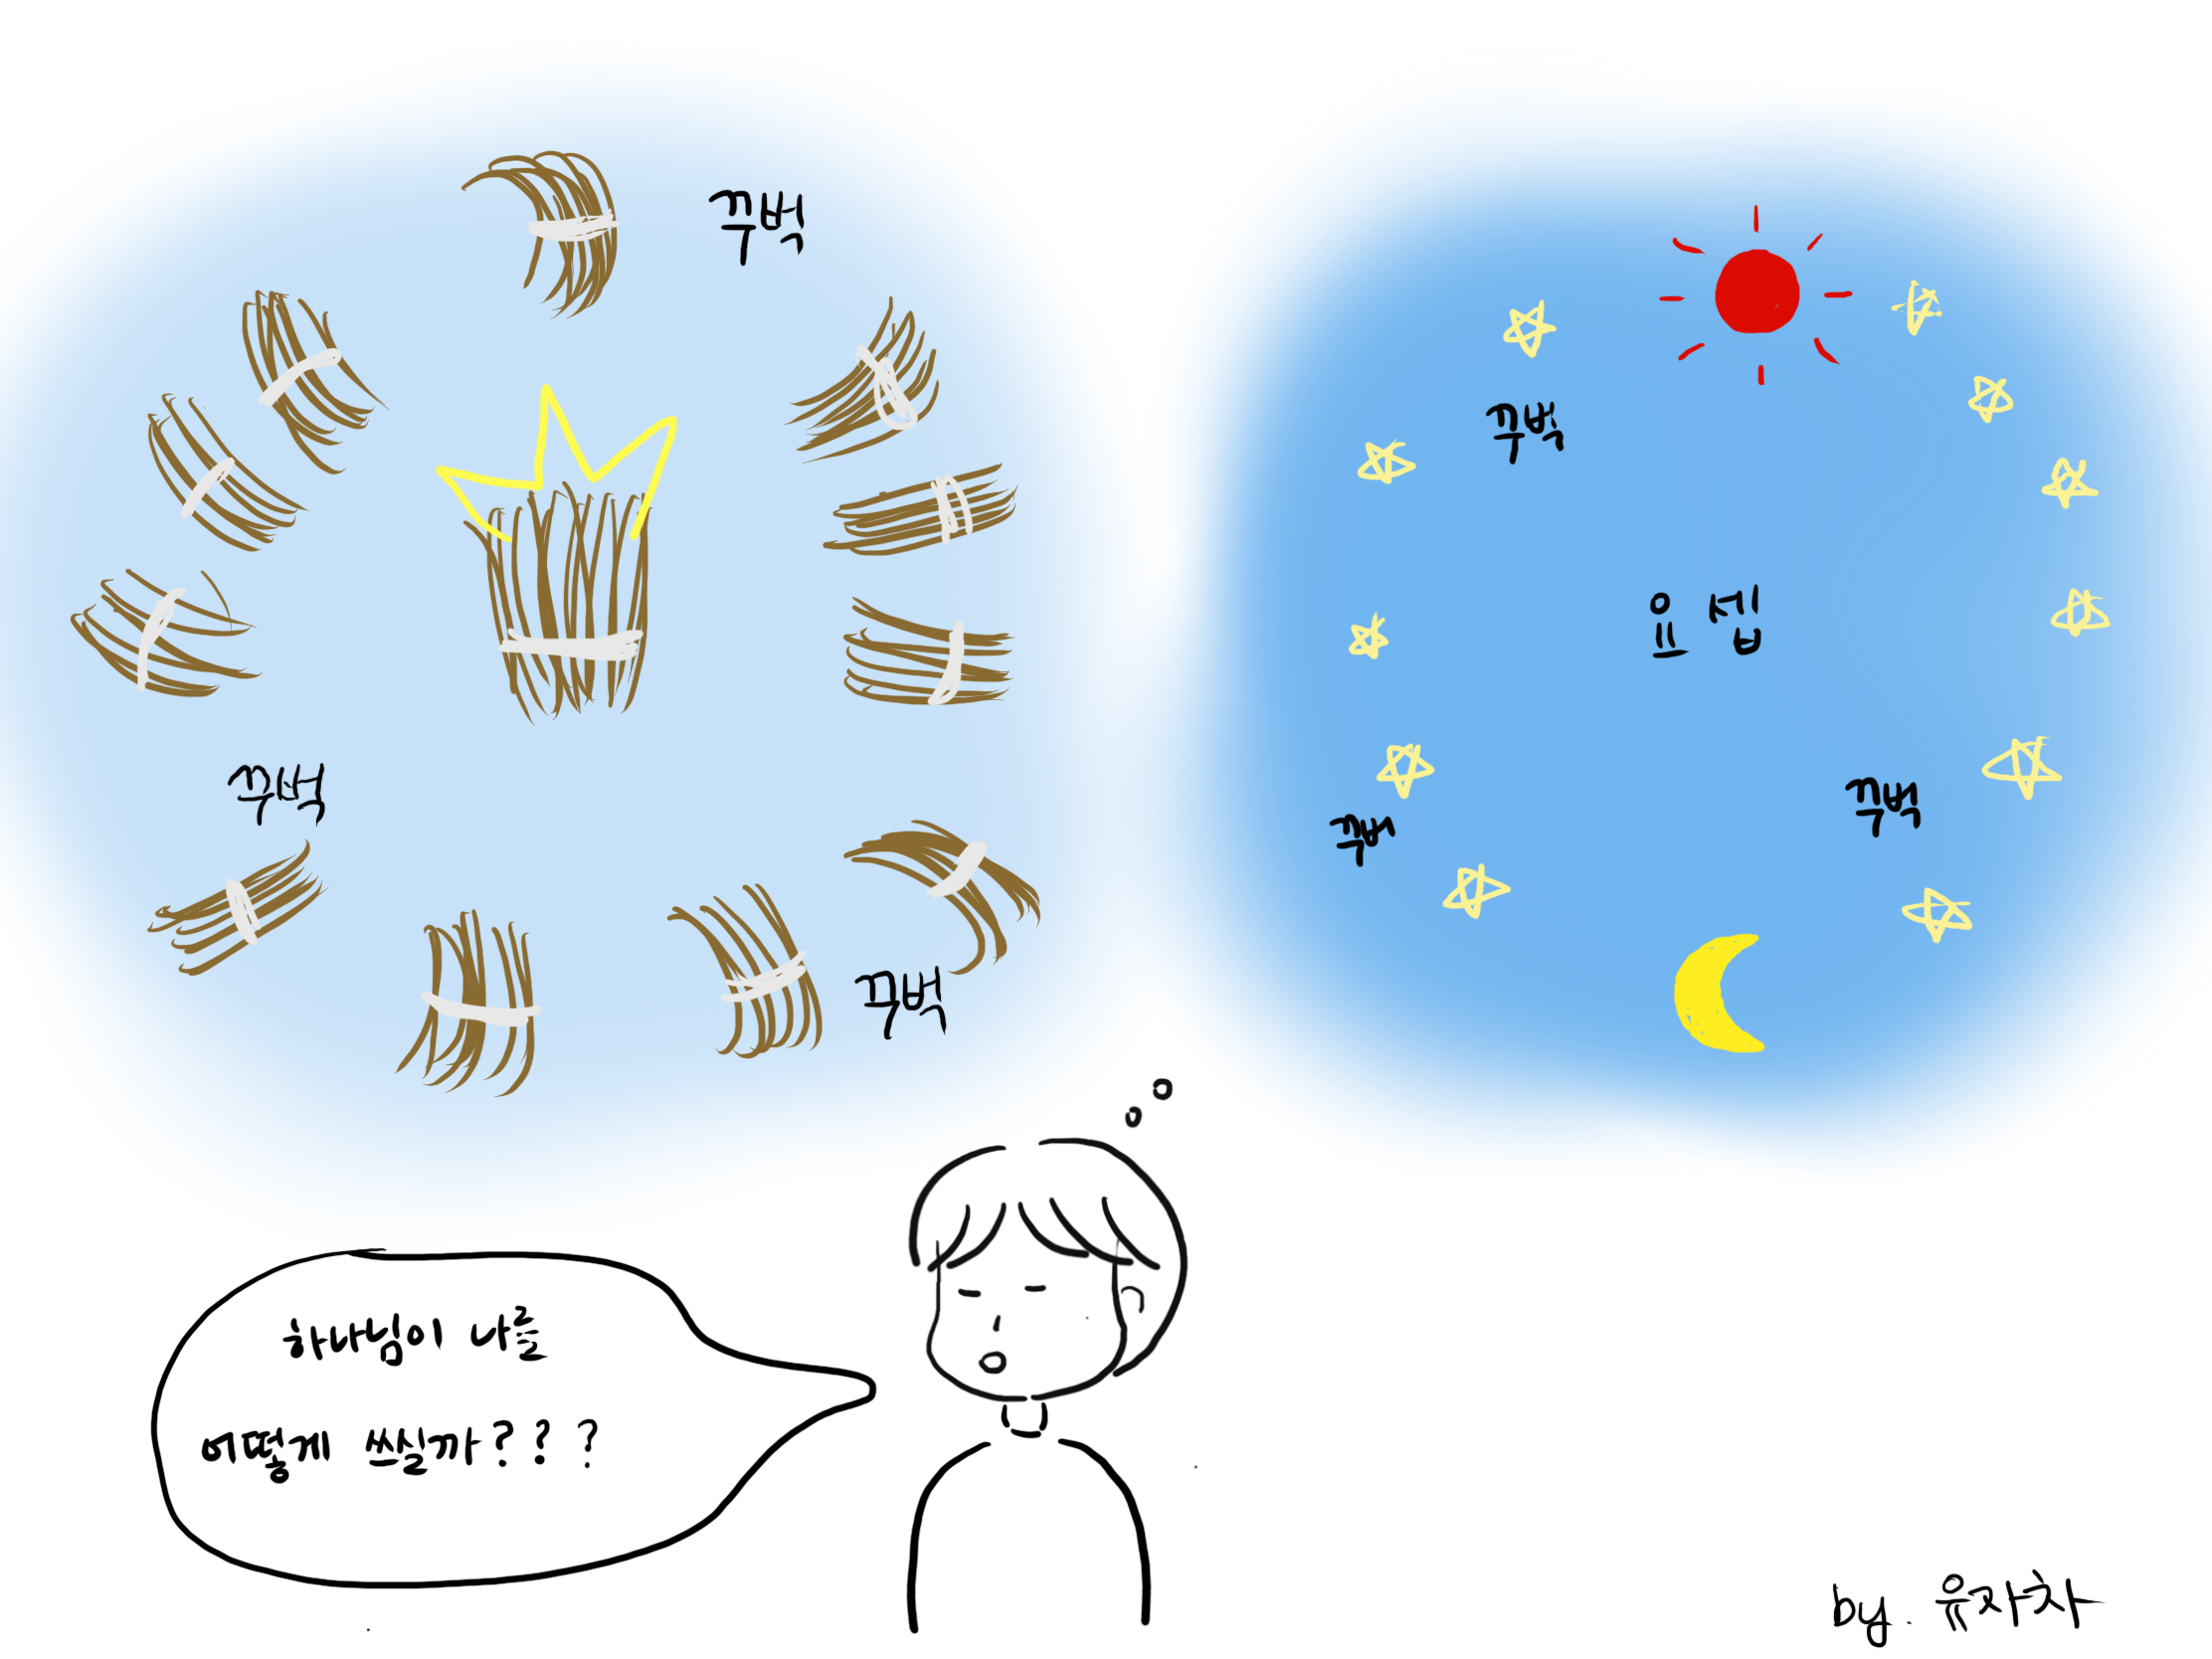 꾸벅
꾸벅
꾸벅
꾸벅
요셉
꾸벅
꾸벅
하나님이 나를
어떻게 쓰실까???
by. 유자차